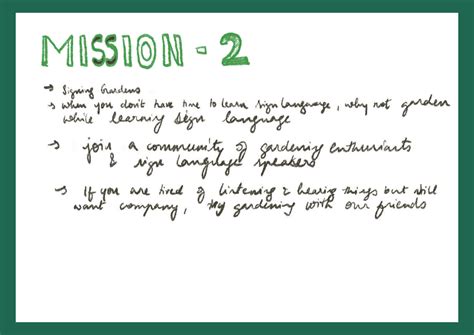 MISSION - 2
→ Signing Gardens
→ When you don't have time to learn sign language, why not garden
while learning sign language
→ join a community of gardening enthusiasts
& sign language speakers
→ If you are tired of listening & hearing things but still
want company, try gardening with our friends